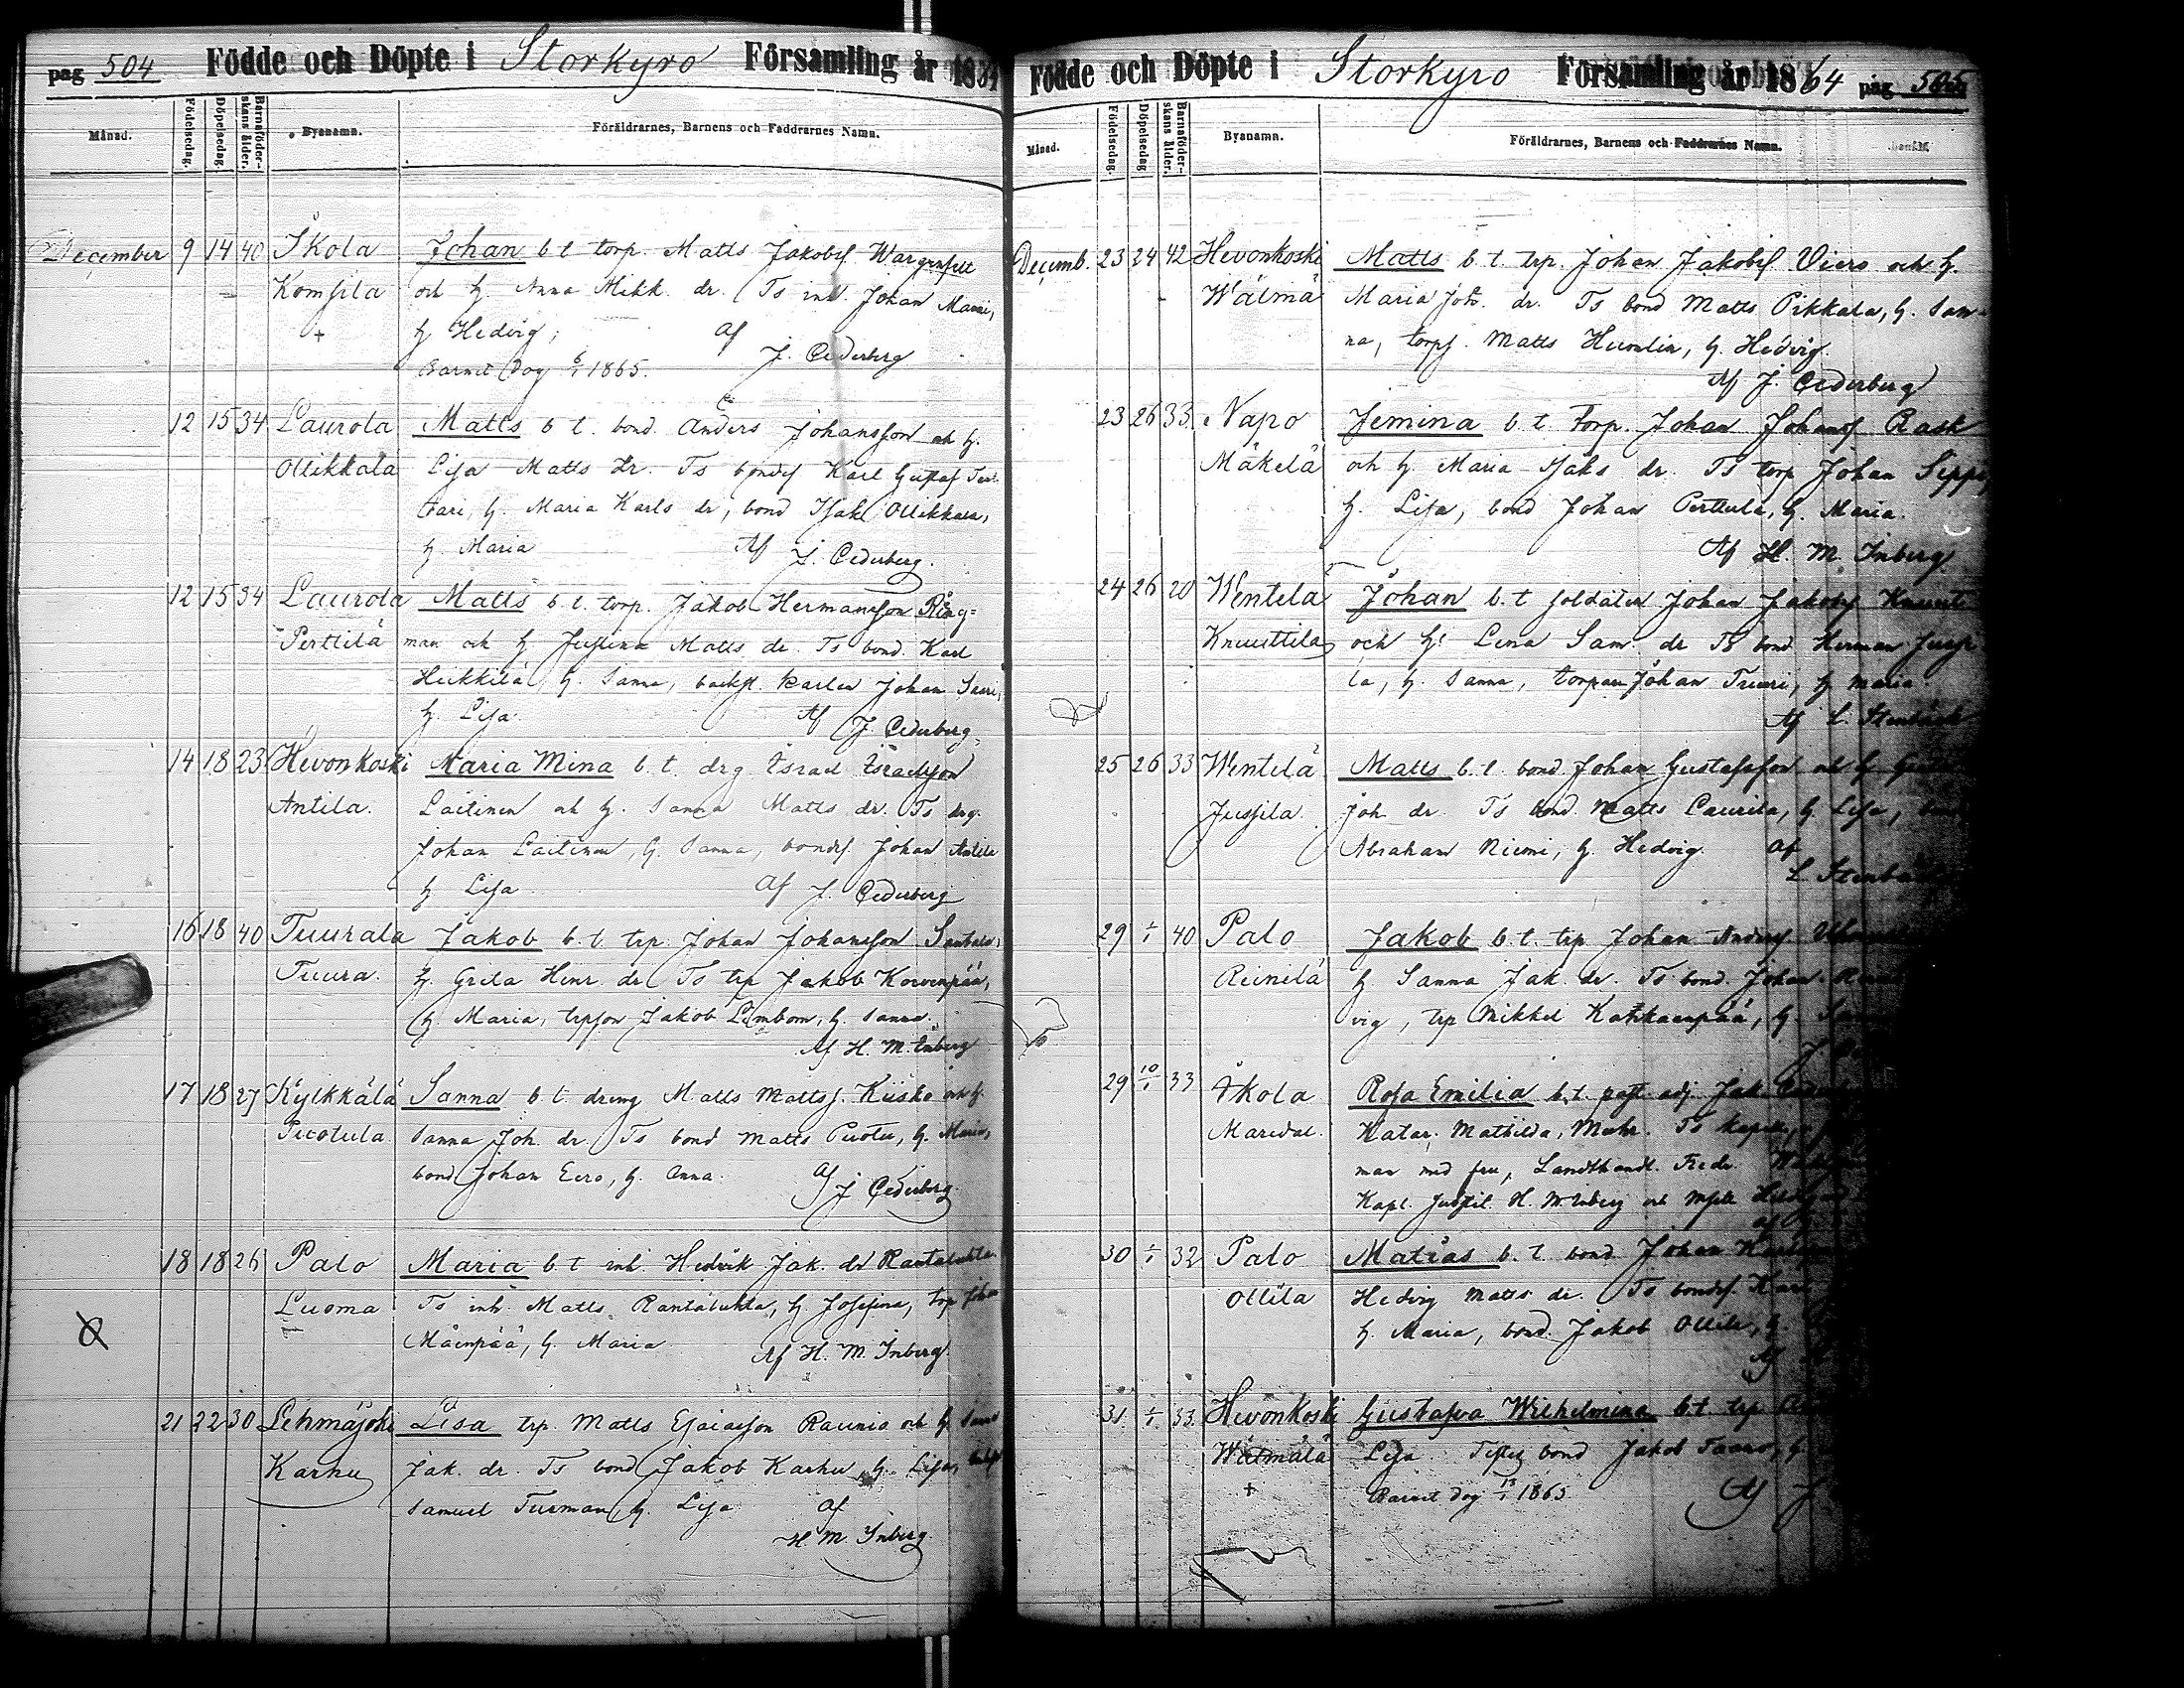 pag 504 Födde och Döpte i Storkyro Församling år 1864
Månad. Födelsedag. Döpelsedag. Barnaföderskans ålder. Byanamn. Föräldrarnes, Barnens och Faddrarnes Namn.
December 9 14 40 Ikola Johan b t torp. Matts Jakobss.
Komsila och h. Anna Mikk. dr. Ts inh. Johan
+ h Hedvig; af J. Cederberg
Barnet dog 6/1 1865.
12 15 34 Laurola Matts b t. bond Anders Johansson och h.
Ollikkala Lisa Matts dr. Ts bondes Karl Gustaf
h. Maria Karls dr, bond Isak Ollikkala,
h Maria Af J. Cederberg.
12 15 34 Laurola Matts b. t. torp. Jakob Hermansson Ring-
Perttilä man och h Justina Matts dr. Ts bond. Karl
Heikkilä, h. Sanna, backst. karlen Johan Saari,
h. Lisa. Af J. Cederberg.
14 18 23 Hevonkoski Maria Mina b. t. drg Israel Israelsson
Antila. Laitinen och h. Sanna Matts dr. Ts drg.
Johan Laitinen, h. Sanna, bondes. Johan Antila
h Lisa Af J. Cederberg
16 18 40 Tuurala Jakob b. t. trp. Johan Johansson
Tuura. h. Greta Henr. dr Ts trp Jakob Korvenpää,
h. Maria, trpson Jakob Limbom, h. Sanna.
Af H. M. Inberg
17 18 27 Kylkkälä Sanna b t. dreng Matts Mattss. Kiisko och h.
Sanna Joh. dr. Ts bond Matts h. Maria,
bond Johan Eero, h. Anna. Af J Cederberg.
18 18 26 Palo Maria b t inh. Hedvik Jak. dr Rantalukta
Luoma Ts inh. Matts Rantalukta, h. Josefina, trp Johan
Mäenpää, h. Maria Af H. M. Inberg.
21 22 30 Lehmäjoki Lisa trp. Matts Esaiasson Raunio och h Sanna
Karhu Jak. dr. Ts bond Jakob Karhu, h. Lisa,
Samuel Turman, h. Lisa Af
H M. Inberg.
Födde och Döpte i Storkyro Församling år 1864 pag 505
Månad. Födelsedag. Döpelsedag Barnaföderskans ålder. Byanamn. Föräldrarnes, Barnens och Faddrarnes Namn.
Decemb. 23 24 42 Hevonkoski Matts b. t. trp. Johan Jakobss. och h.
Wälmä Maria Joh. dr. Ts bond Matts Pikkala, h. San-
na, torps. Matts h. Hedvig.
Af J. Cederberg
23 26 33 Napo Jemina b. t torp. Johan Johanss Rask
Mäkelä och h. Maria Isaks dr. Ts torp Johan
h. Lisa, bond Johan Perttula, h. Maria.
Af H. M. Inberg
24 26 20 Wentelä Johan b. t soldaten Johan Jakobss
Knuuttila och h. Lena Sam. dr Ts bond Herman Jussi
la, h. Sanna, torparn Johan h Maria
Af L. Stenbäck
25 26 33 Wentelä Matts b. t. bond Johan Gustafsson och h
Jussila. Joh dr. Ts bond. Matts Laurila, h. Lisa,
Abraham Niemi, h. Hedvig. Af
L Stenbäck
29 1/1 40 Palo Jakob b. t. trp Johan Anderss
Reinilä h. Sanna Jak. dr. Ts bond. Johan
vig, trp Mikkel h.
29 10/1 33 Ikola Rosa Emilia b. t. past. adj. Jak.
Katar. Mathilda, Ts kapell.
man med fru, Landthandl. Fredr.
Kapl. H. M. Inberg och
30 1/1 32 Palo Matias b. t bond Johan
Ollila Hedvig Matts dr. Ts bondes.
h. Maria, bond. Jakob Ollila, h.
Af
31 1/1 33 Hevonkoski Gustafva Wilhelmina b. t. trp
Wälmälä Lisa bond Jakob h.
+ Barnet dog 13/1 1865 Af J